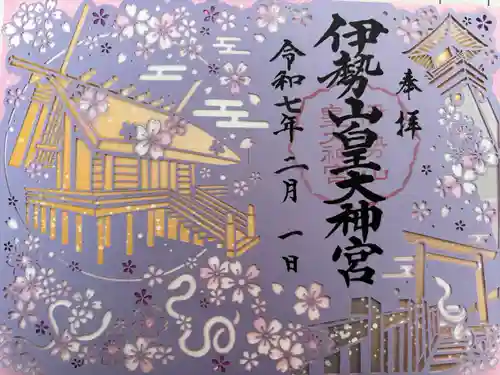 奉拝
伊勢山皇大神宮
令和七年二月一日